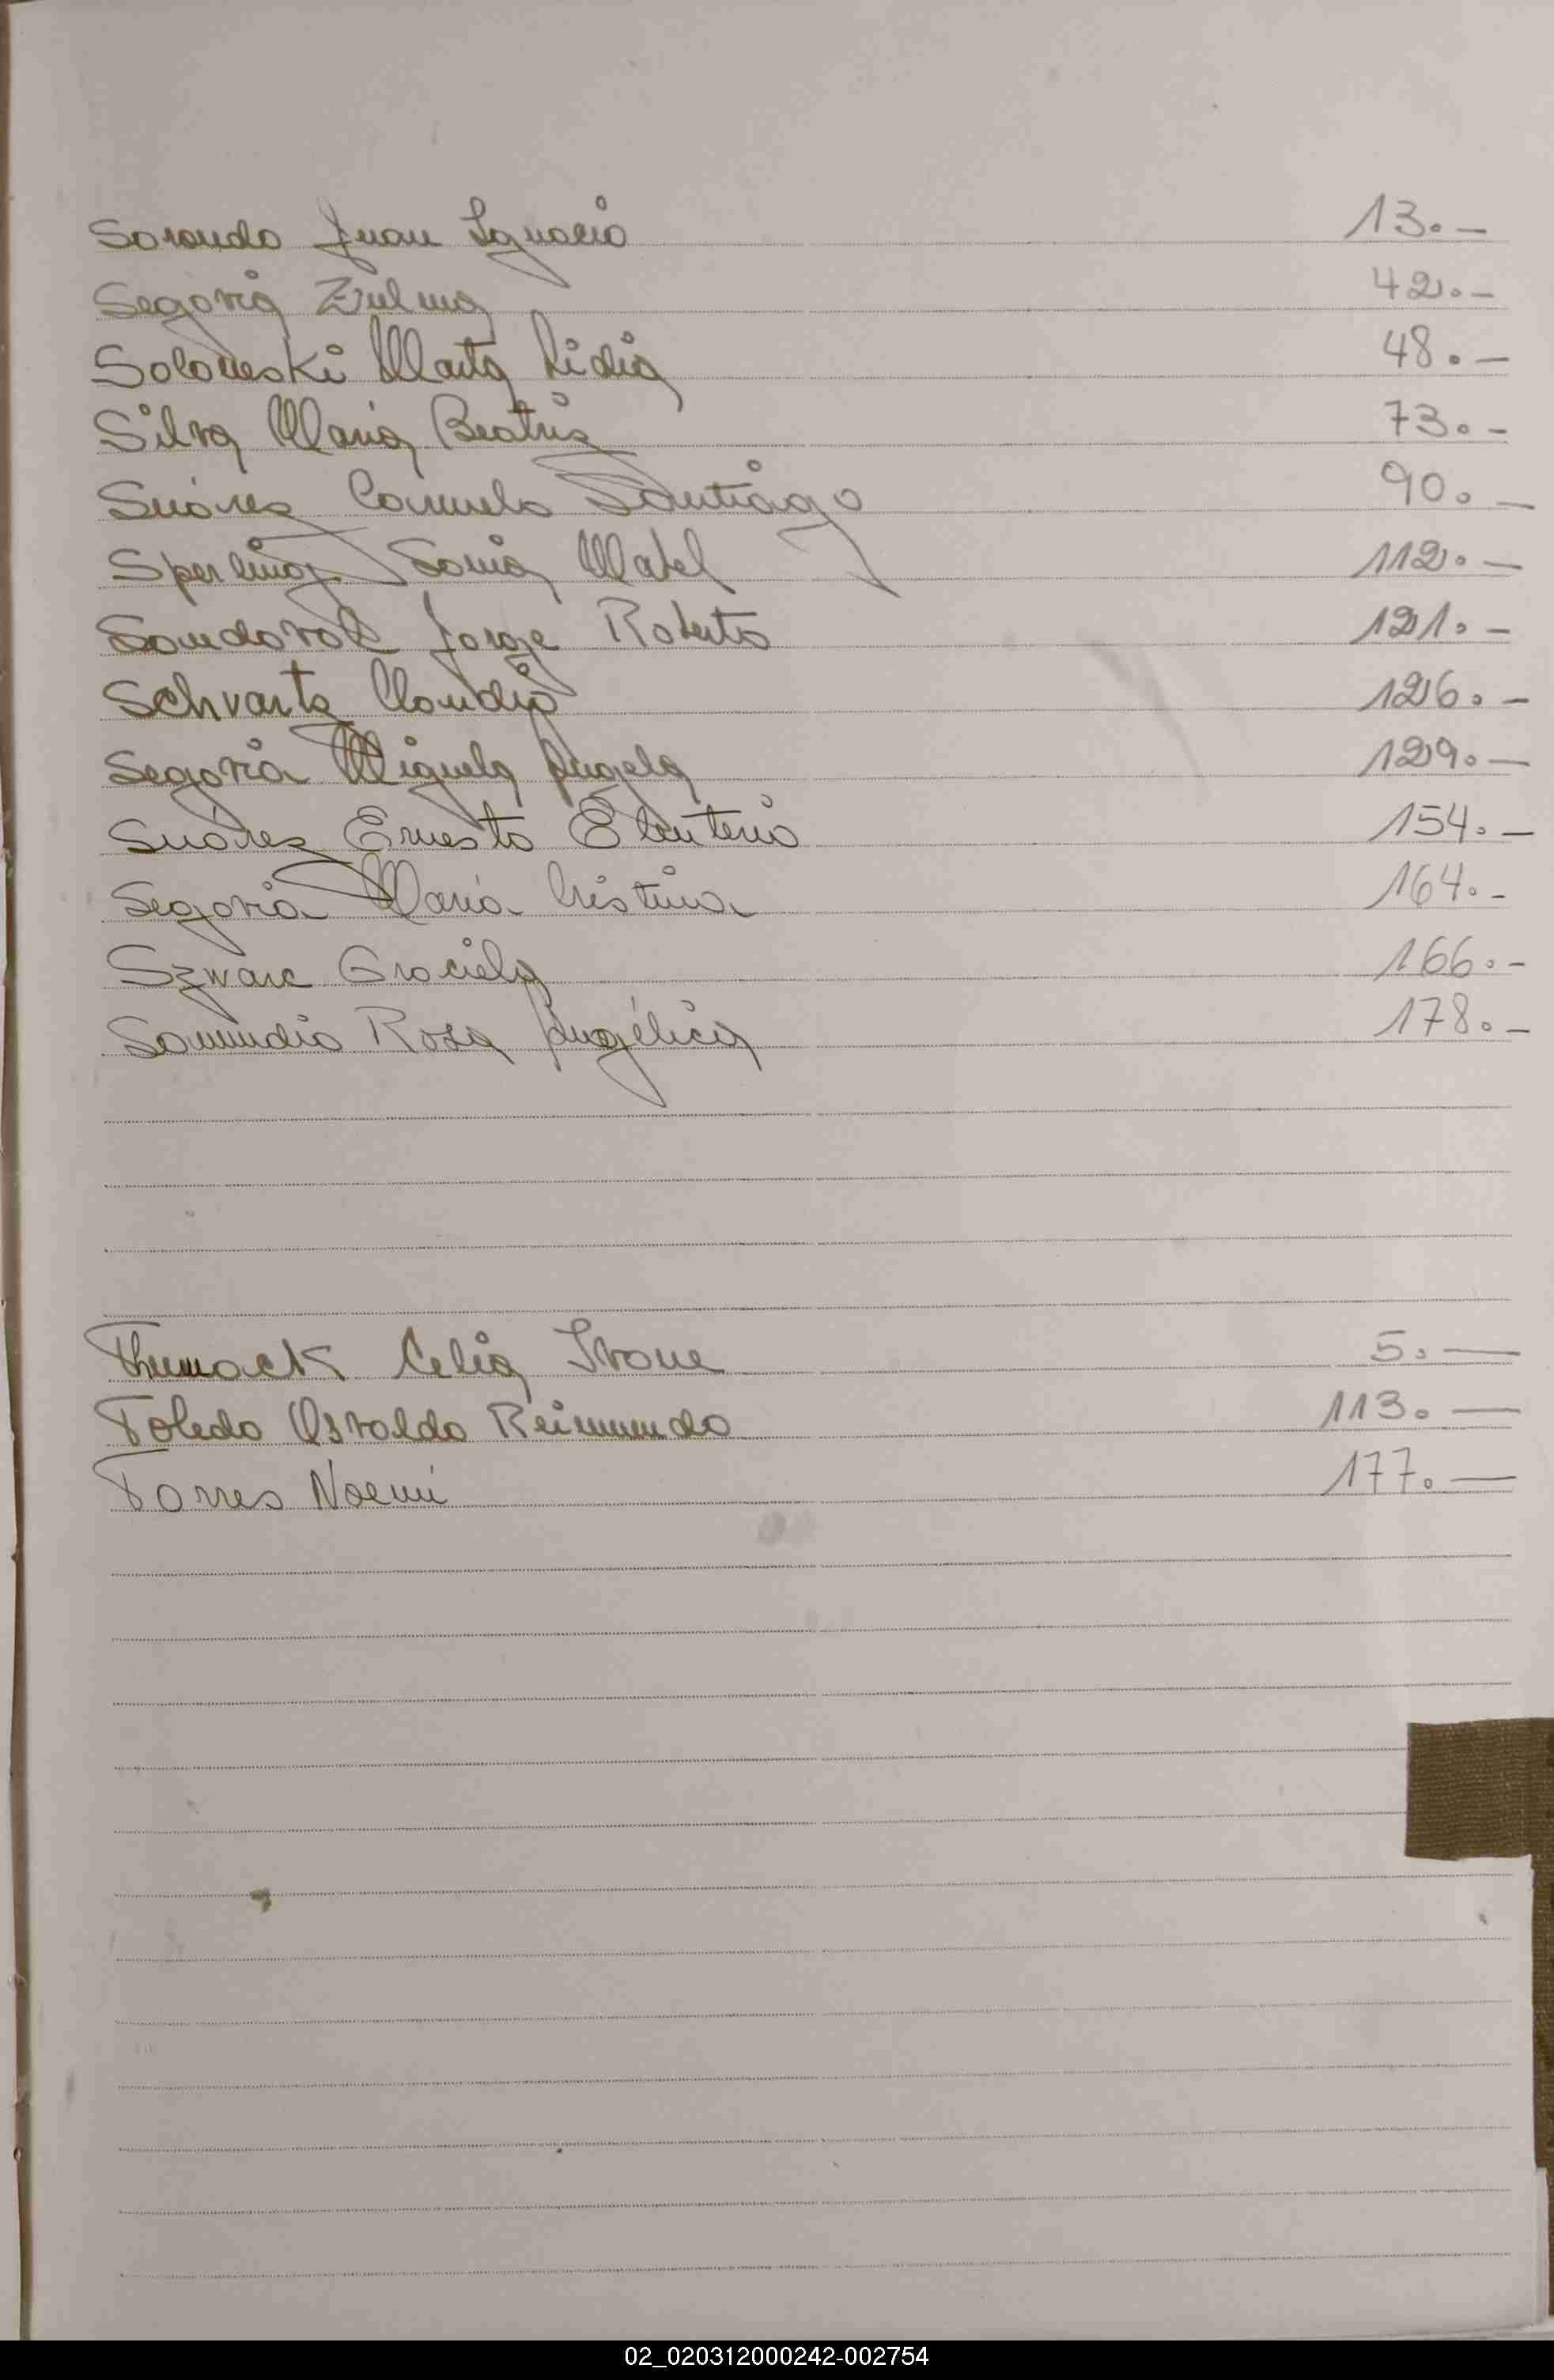 Sarando Juan Ignacio 13.-
Segovia Zulma 42.-
Soloneski Marta Lidia 48.-
Silva María Beatriz 73.-
Suárez Camilo Santiago 90.-
Sperling Sonia Mabel 112.-
Sandoval Jorge Roberto 121.-
Schvartz Claudio 126.-
Segovia Miguela Angela 129.-
Suárez Ernesto Eleuterio 154.-
Segovia María Cristina 164.-
Szwarc Graciela 166.-
Samudio Rosa Angélica 178.-
Celia Ivone 5.-
Toledo Osvaldo Reimundo 113.-
Torres Noemí 177.-
02_020312000242-002754